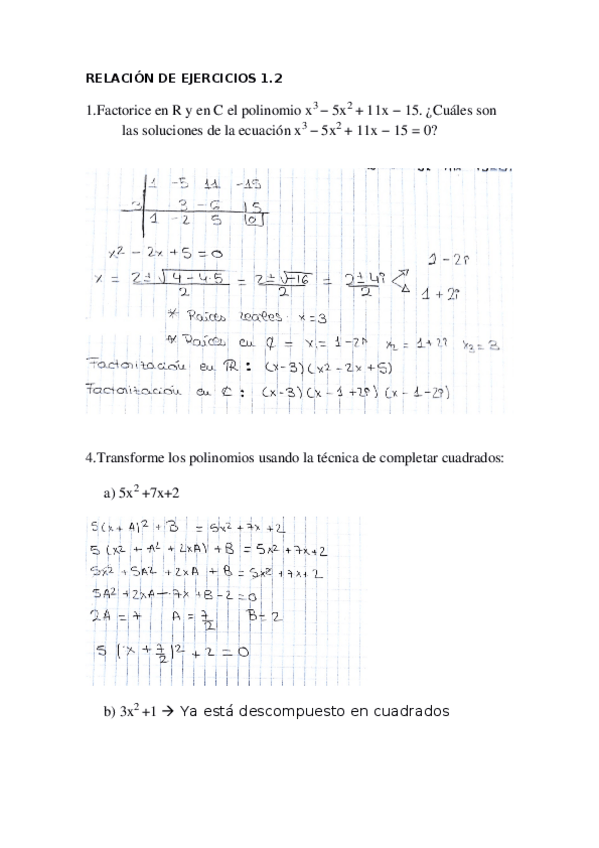 RELACIÓN DE EJERCICIOS 1.2
1.Factorice en R y en C el polinomio x³ – 5x² + 11x − 15. ¿Cuáles son
las soluciones de la ecuación x³ – 5x² + 11x − 15 = 0?
1 -5 11 -15
3 3 -6 15
1 -2 5 0
x² - 2x + 5 = 0
x = 2±√4-4·5 / 2 = 2±√-16 / 2 = 2±4i / 2
1 - 2i
1 + 2i
* Raíces reales: x=3
* Raíces en ₵ = x₁ = 1-2i x₂ = 1+2i x₃ = 3
Factorización en ℝ : (x-3)(x²-2x+5)
Factorización en ₵ : (x-3)(x-1+2i)(x-1-2i)
4.Transforme los polinomios usando la técnica de completar cuadrados:
a) 5x² +7x+2
5(x+A)² + B = 5x² + 7x + 2
5(x² + A² + 2xA) + B = 5x² + 7x + 2
5x² + 5A² + 2xA + B = 5x² + 7x + 2
5A² + 2xA - 7x + B - 2 = 0
2A = 7 A = 7/2 B = 2
5(x + 7/2)² + 2 = 0
b) 3x² +1 → Ya está descompuesto en cuadrados